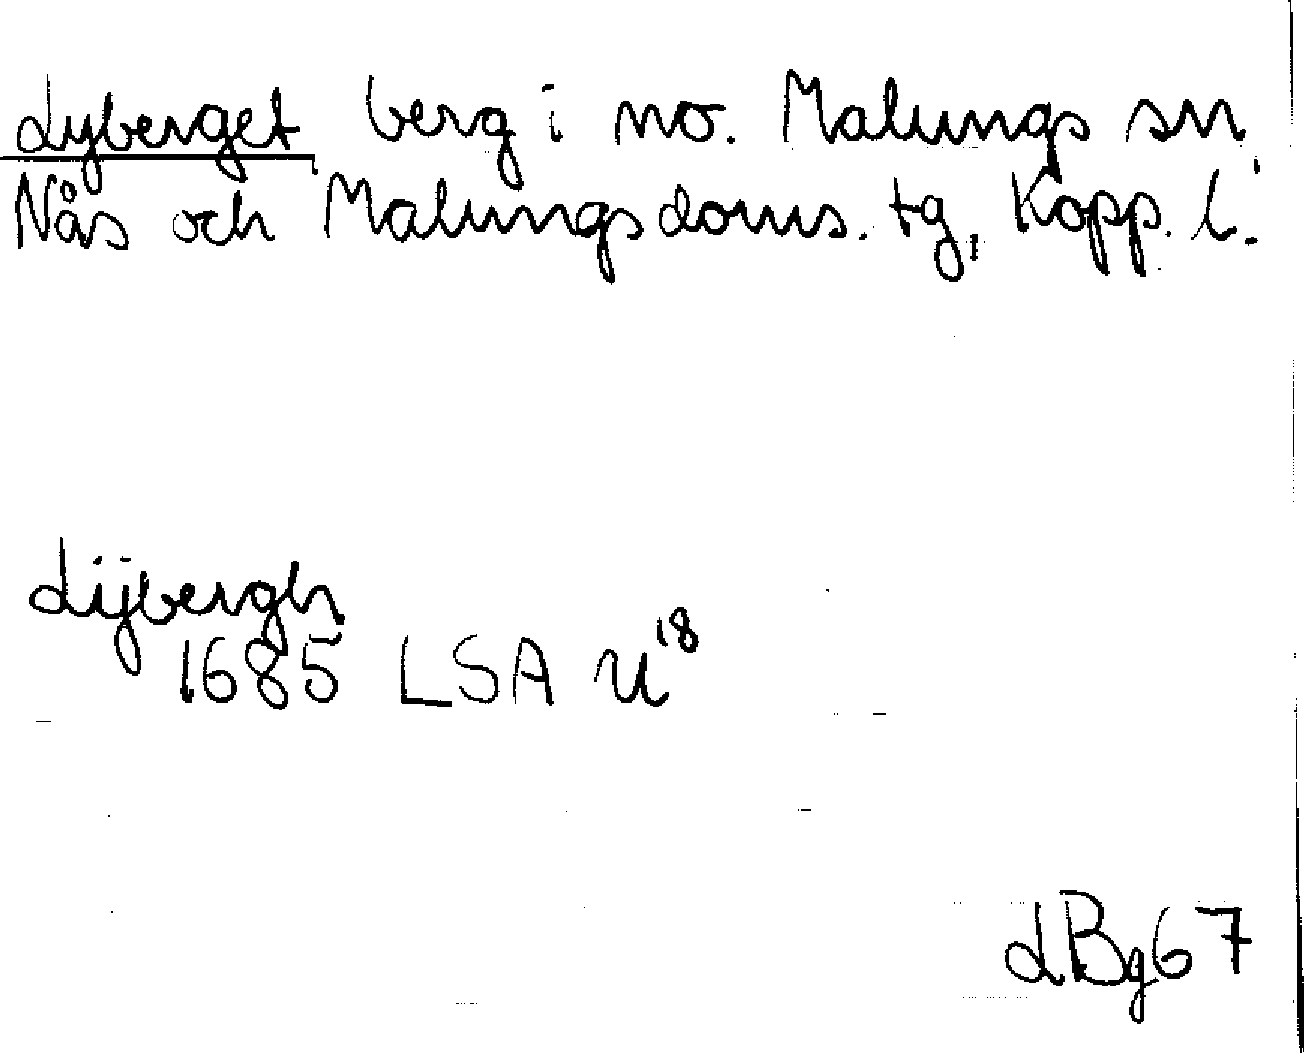 Lyberget berg i nö. Malungs sn,
Nås och Malungs doms. tg, Kopp. l.
Lijbergh
1685 LSA U18
LBg67